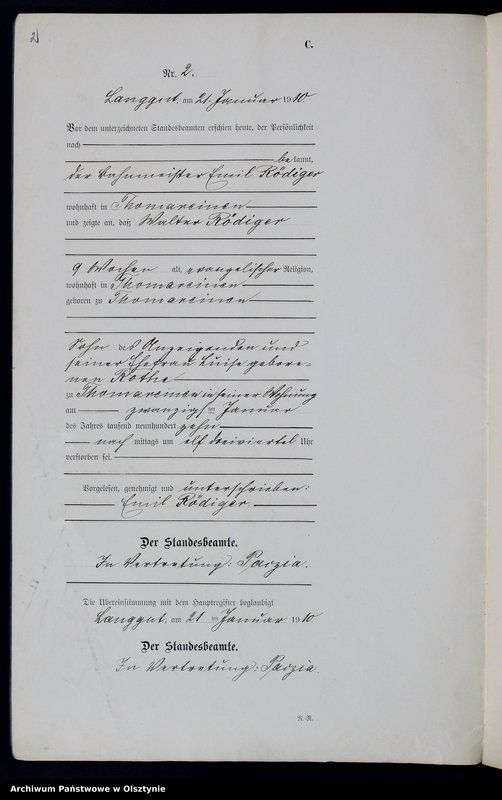 2
C.
Nr. 2.
Langgut, am 21. Januar 1910.
Vor dem unterzeichneten Standesbeamten erschien heute, der Persönlichkeit
nach
bekannt,
der Bahnmeister Emil Rödiger
wohnhaft in Thomareinen
und zeigte an, daß Walter Rödiger
9 Wochen alt, evangelischer Religion,
wohnhaft in Thomareinen
geboren zu Thomareinen
Sohn des Anzeigenden und
seiner Ehefrau Luise gebore=
nen Rothe
zu Thomareinen in seiner Wohnung
am zwanzigsten Januar
des Jahres tausend neunhundert zehn
nach mittags um elf dreiviertel Uhr
verstorben sei.
Vorgelesen, genehmigt und unterschrieben:
Emil Rödiger.
Der Standesbeamte.
In Vertretung: Parzia.
Die Übereinstimmung mit dem Hauptregister beglaubigt
Langgut, am 21 ten Januar 1910.
Der Standesbeamte.
In Vertretung: Parzia.
R.-R.
Archiwum Państwowe w Olsztynie